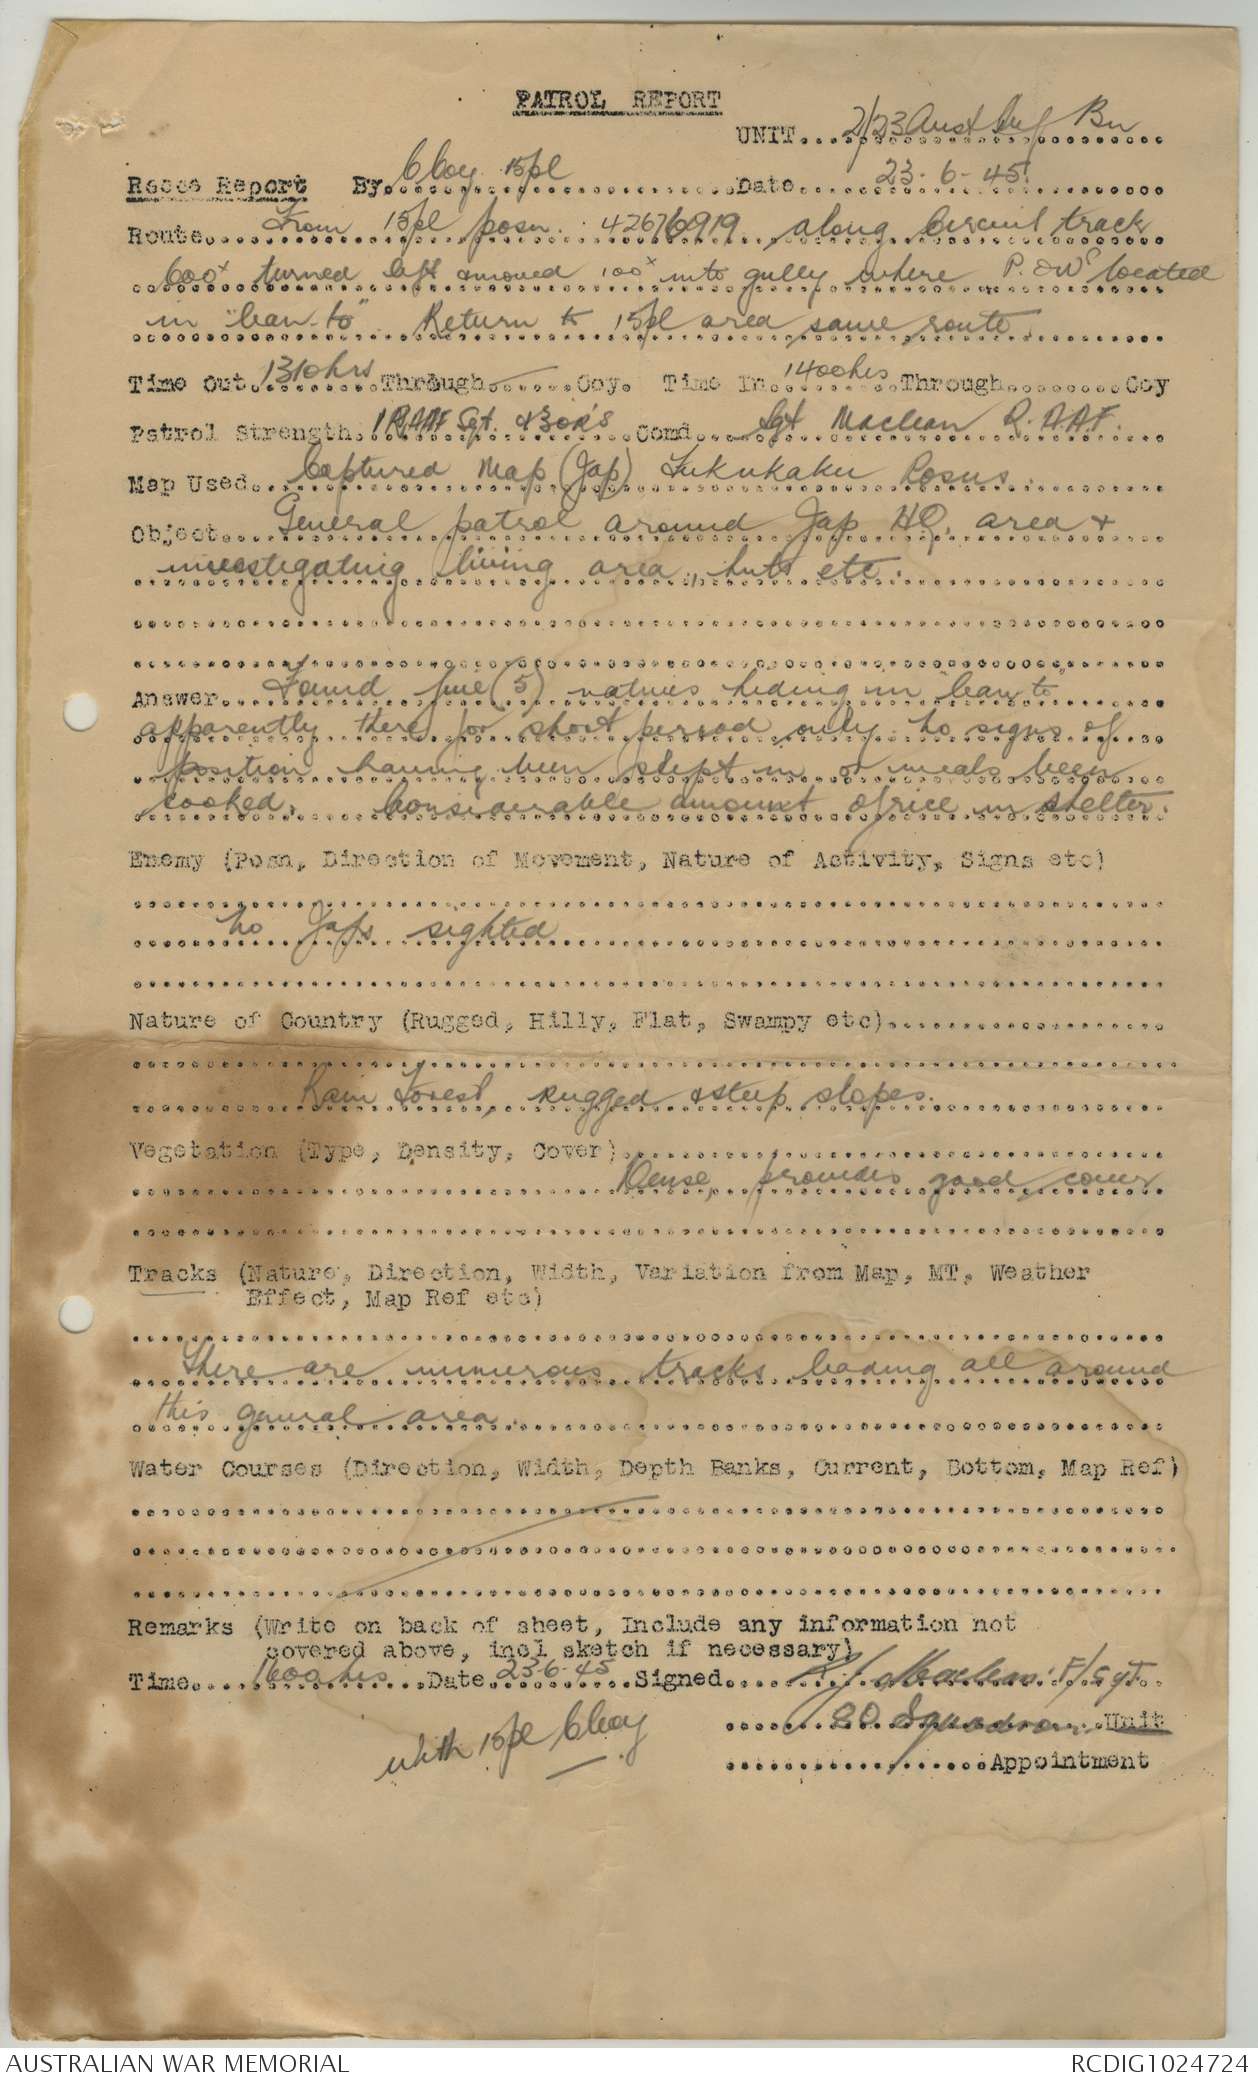 PATROL REPORT
UNIT... 2/23 Aust Inf Bn
Recce Report By. C Coy 15pl Date. 23-6-45
Route. From 15pl posn. 42676919 along Circuit track
600x turned left & moved 100x into gully where P.O.Ws located
in "lean-to" Return to 15pl area same route.
Time Out. 1310hrs Through. — Coy. Time In. 1400hrs Through........ Coy
Patrol Strength. 1 RAAF Sgt. & 3 OR's Comd. Sgt Maclean R.A.A.F.
Map Used. Captured Map (Jap) Fukukaku Posns.
Object. General patrol around Jap HQ. area &
investigating living area, huts etc.
Answer. Found five (5) natives hiding in "lean to"
apparently there for short period only no signs of
position having been slept in or meals been
cooked. Considerable amount of rice in shelter.
Enemy (Posn, Direction of Movement, Nature of Activity, Signs etc)
No Japs sighted
Nature of Country (Rugged, Hilly, Flat, Swampy etc)
Rain Forest, rugged & steep slopes.
Vegetation (Type, Density, Cover)
Dense, provides good cover
Tracks (Nature, Direction, Width, Variation from Map, MT, Weather
Effect, Map Ref etc)
There are numerous tracks leading all around
this general area.
Water Courses (Direction, Width, Depth Banks, Current, Bottom, Map Ref)
Remarks (Write on back of sheet, Include any information not
covered above, incl sketch if necessary)
Time. 1600hrs Date. 23-6-45 Signed. Maclean. F/Sgt.
20 Squadron Unit
with 15pl C Coy
Appointment
AUSTRALIAN WAR MEMORIAL RCDIG1024724